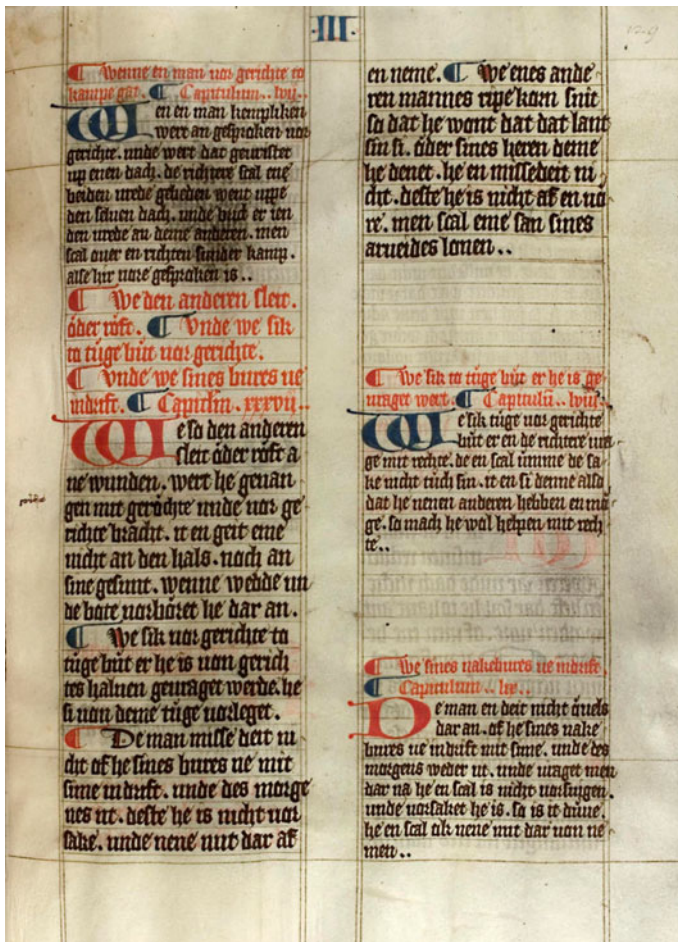 III
129
¶ Wenne en man vor gerichte to
kampe gat. ¶ Capitulum .. lvij..
Wen en man kempliken
wert an gesproken vor
gerichte. unde wert dat geuristet
up enen dach. de richtere scal ene
beiden vrede gebeden went uppe
den seluen dach. unde brict er ien
den vrede an deme anderen. men
scal ouer en richten sunder kamp.
alse hir vore gesproken is..
¶ We den anderen sleit.
oͤder roͤft. ¶ Unde we sik
to tuͤge buͤt vor gerichte.
¶ Unde we sines bures ve
indrift. ¶ Capitlm. xxxvij..
We so den anderen
sleit oͤder roͤft a
ne wunden. wert he geuan
gen mit geruͤchte unde vor ge
richte bracht. it en geit eme
nicht an den hals. noch an
sine gesunt. wenne wedde un
de bote vorboret he dar an.
¶ We sik vor gerichte to
tuͤge buͤt er he is von gerich
tes haluen geuraget werde. he
si von deme tuͤge vorleget.
¶ De man misse deit ni
cht of he sines bures ve mit
sime indrift. unde des morge
nes ut. deste he is nicht vor
sake. unde nene nut dar af
en neme. ¶ We enes ande
ren mannes ripe korn snit
so dat he wont dat dat lant
sin si. oͤder sines heren deme
he denet. he en missedeit ni
cht. deste he is nicht af en voͤ
re. men scal eme san sines
arueides lonen..
¶ We sik to tuͤge buͤt er he is ge
uraget wert. ¶ Capituluͫ .. lviij..
We sik tuͤge vor gerichte
buͤt er en de richtere vra
ge mit rechte. de en scal umme de sa
ke nicht tuͤch sin. it en si denne also
dat he nenen anderen hebben en muͤ
ge. so mach he wol helpen mit rech
te..
¶ We sines nakebures ve indrift.
¶ Capitulum .. lix..
De man en deit nicht oͤuels
dar an. of he sines nake
bures ve indrift mit sime. unde des
morgens weder ut. unde vraget men
dar na he en scal is nicht vorsuigen.
unde vorsaket he is. so is it duͤue.
he en scal ok nene nut dar von ne
men..